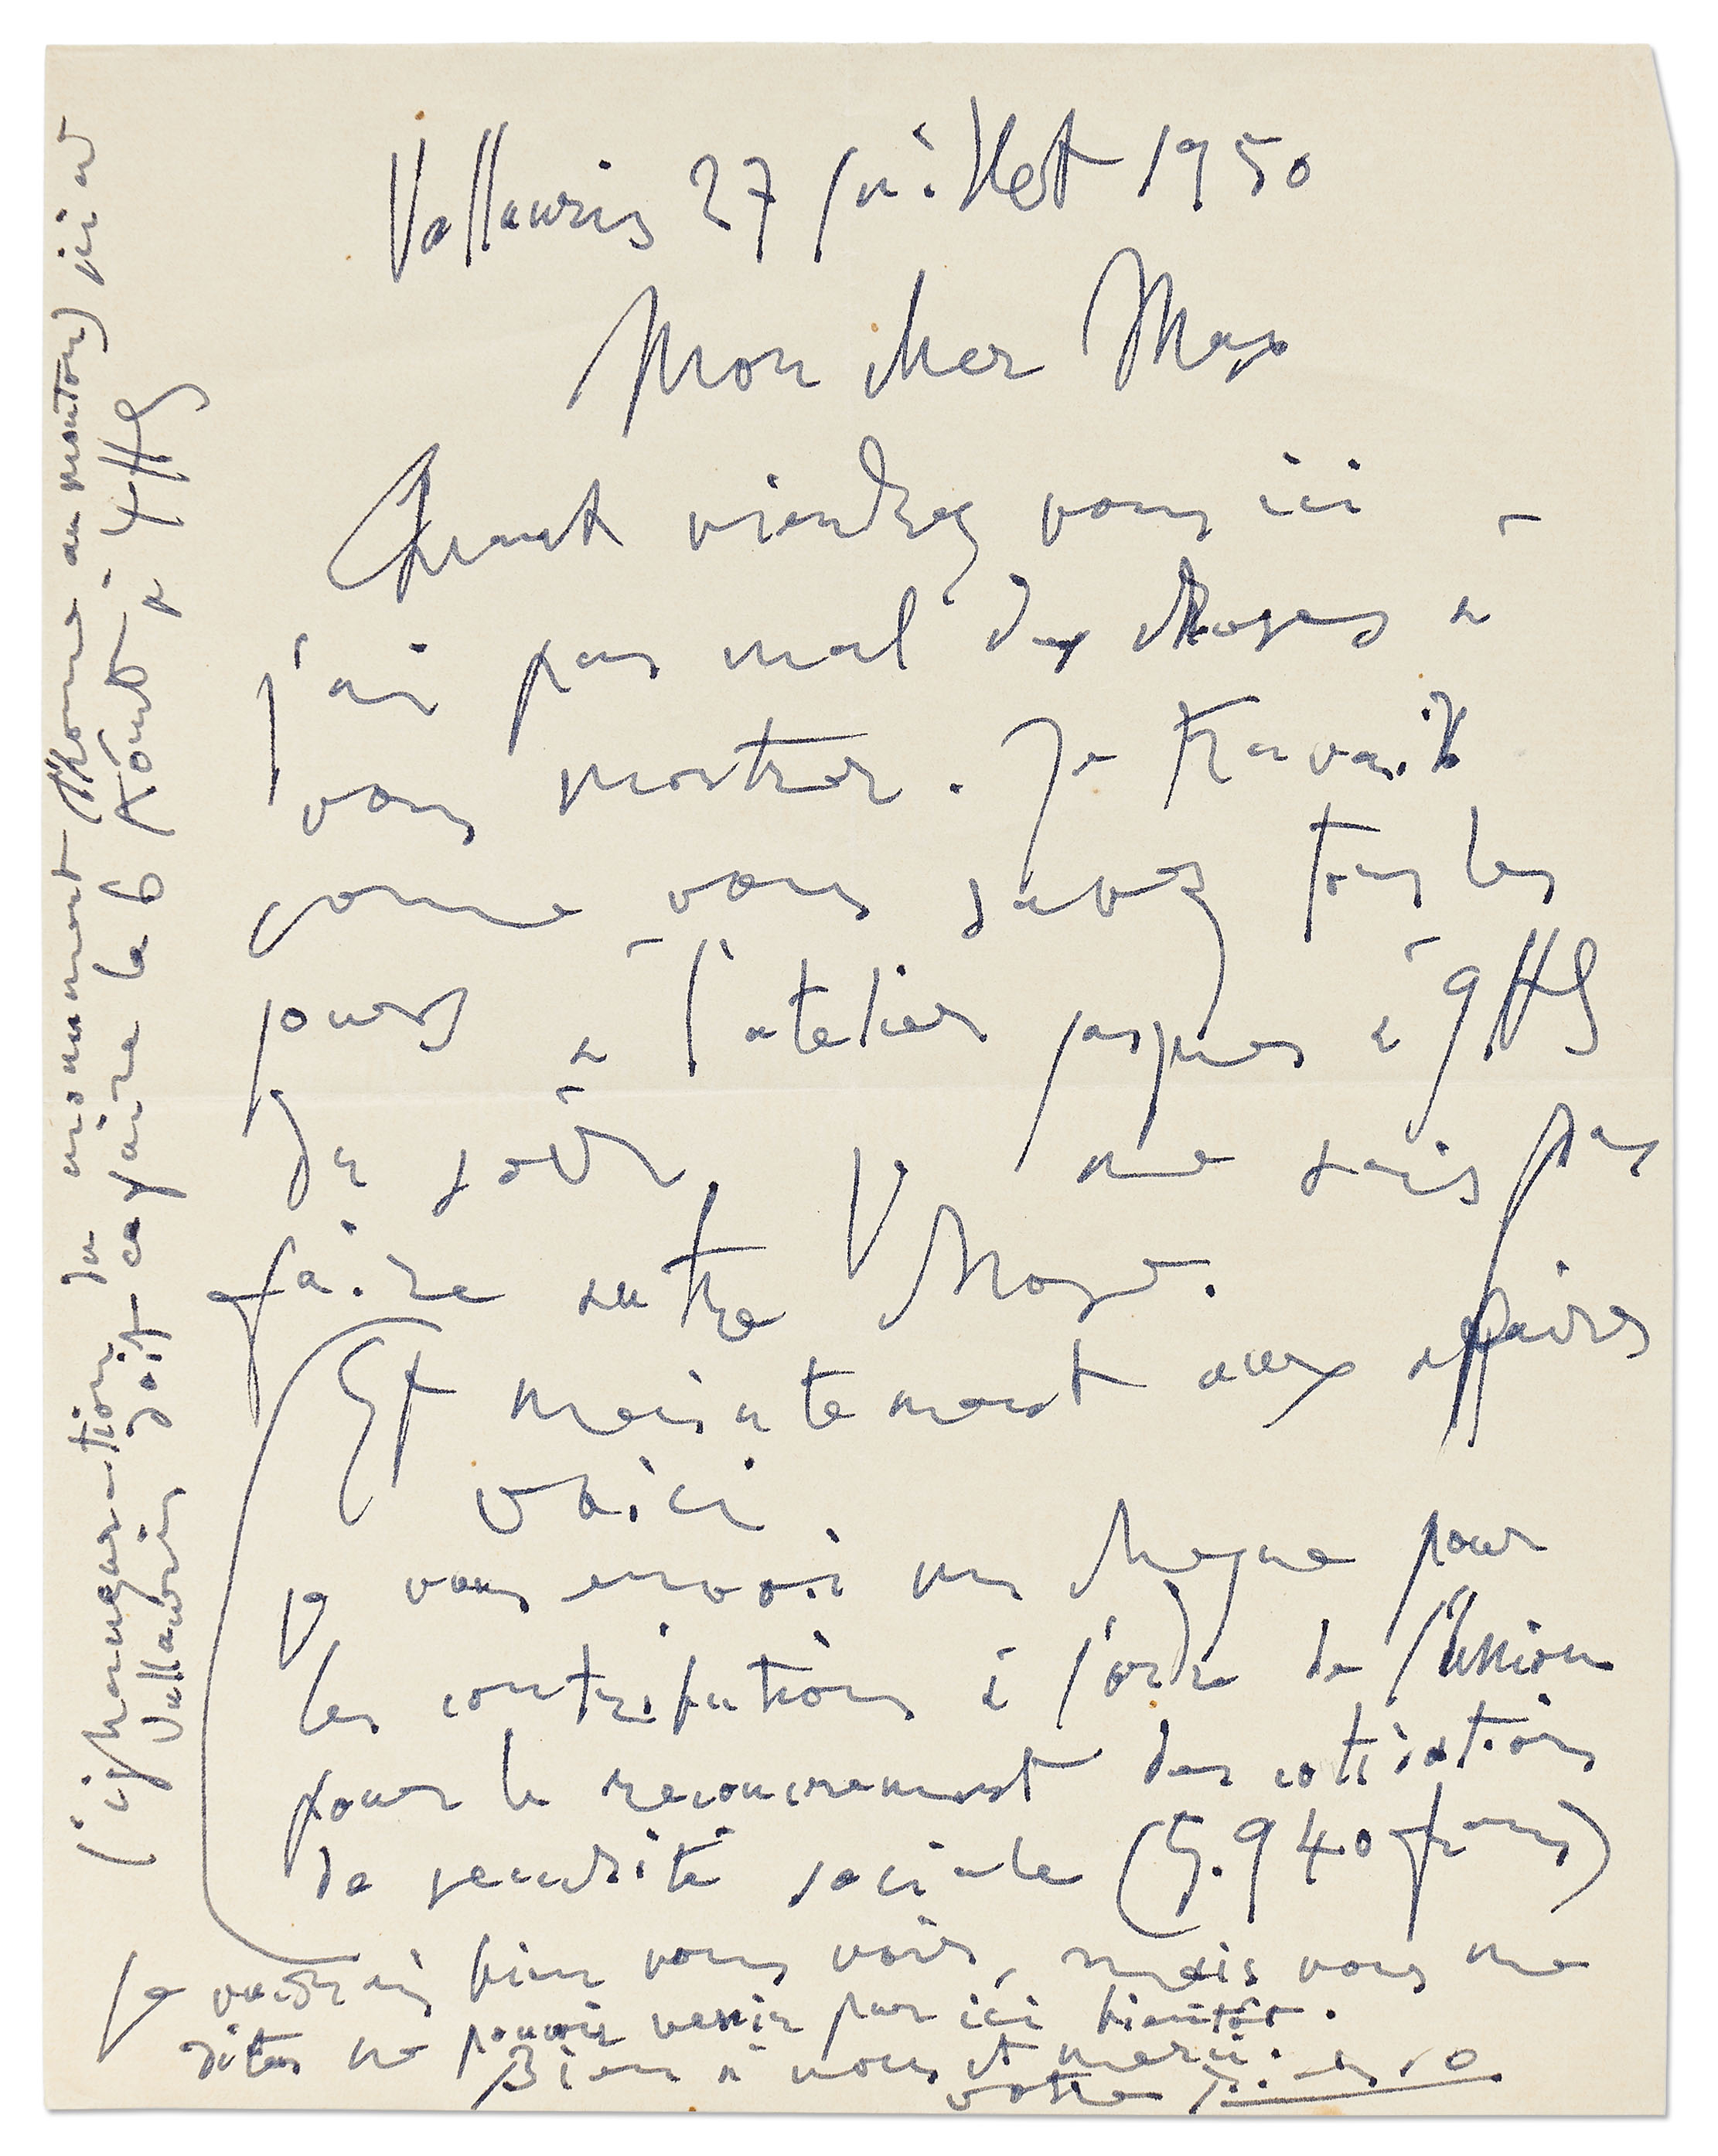 Vallauris 27 juillet 1950
Mon cher Max
Quant viendrez vous ici –
j'ai pas mal des choses a
vous montrer. Je travaill
come vous savez tous les
jours a l'atelier jusques à 9 H S
Du soir, je ne sais pas
faire autre chose.
Et maintenant aux affaires
voici.
je vous envoi un cheque pour
les contributions à l'ordre de l'Union
pour le recouvrement des cotisations
de securité sociale (5.940 francs)
Je voudrai bien vous voir, mais vous me
dites ne pouvoir venir par ici bientôt.
Bien a vous et merci.
votre Picasso
(L'inhauguration du monument (l'home au mouton) ici a
Vallauris doit ce faire le 6 Aôut,